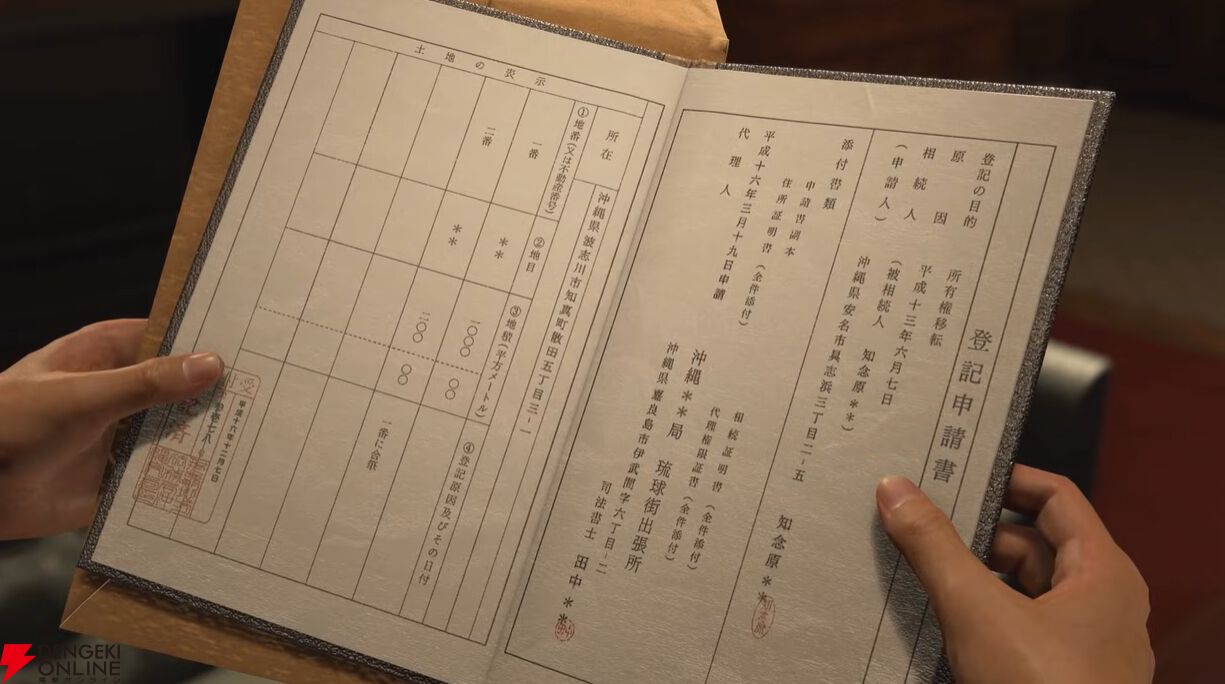 登記申請書
登記の目的 所有権移転
原因 平成十三年六月七日
相続人 （被相続人 知念原＊＊）
（申請人） 沖縄県安名市具志浜三丁目二-五
知念原＊＊
添付書類
申請書副本 相続証明書（全件添付）
住所証明書（全件添付） 代理権限証書（全件添付）
平成十六年三月十九日申請 沖縄＊＊局 琉球街出張所
代理人 沖縄県嘉良島市伊武間字六丁目-二
司法書士 田中＊＊
土地の表示
所在 沖縄県波志川市知真町散田五丁目三-一
①地番（又は不動産番号） ②地目 ③地積（平方メートル） ④登記原因及びその日付
一番 ＊＊ 一〇〇〇 〇〇
二番 ＊＊ 一〇〇 〇〇 一番に合筆
平成十六年十二月七日
DENGEKI
ONLINE
電撃オンライン